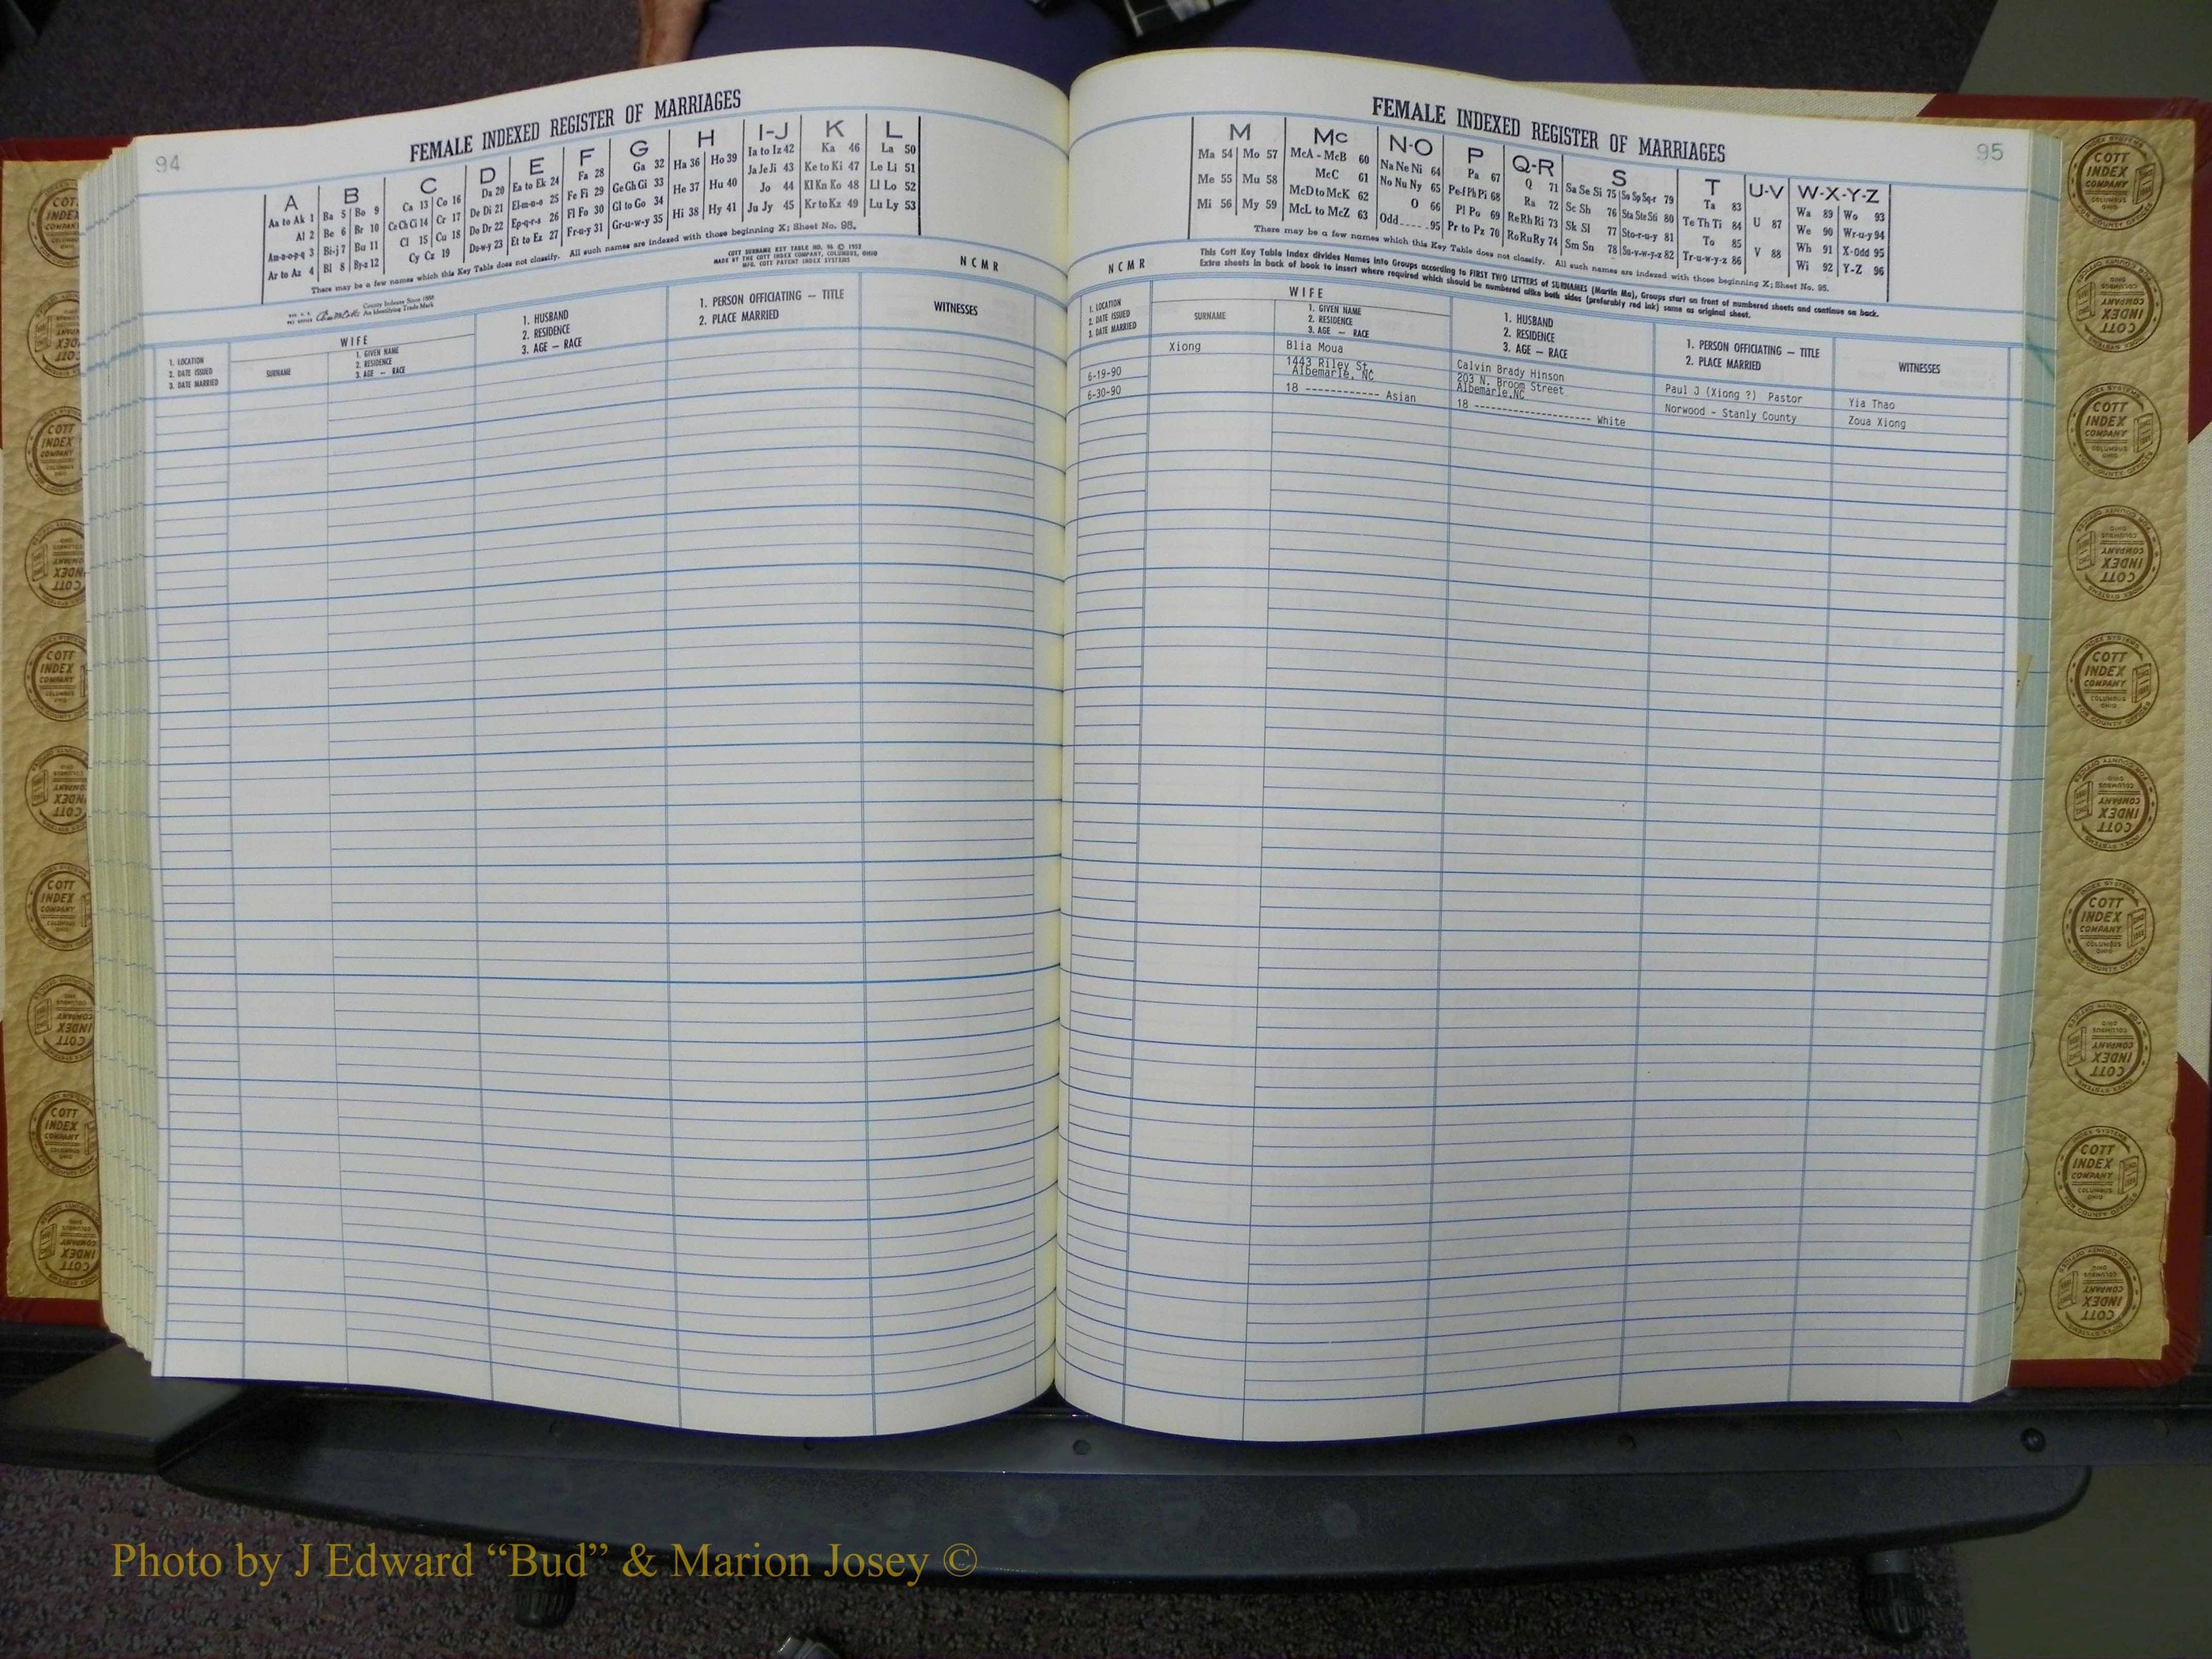 94
FEMALE INDEXED REGISTER OF MARRIAGES
A B C D E F G H I-J K L
Aa to Ak 1 Ba 5 Bo 9 Ca 13 Co 16 Da 20 Ea to Ek 24 Fa 28 Ga 32 Ha 36 Ho 39 Ia to Iz 42 Ka 46 La 50
Al 2 Be 6 Br 10 Ce Ch Ci 14 Cr 17 De Di 21 El-m-n-o 25 Fe Fi 29 Ge Gh Gi 33 He 37 Hu 40 Ja Je Ji 43 Ke to Ki 47 Le Li 51
Am-n-o-p-q 3 Bi-j 7 Bu 11 Cl 15 Cu 18 Do Dr 22 Ep-q-r-s 26 Fl Fo 30 Gl to Go 34 Hi 38 Hy 41 Jo 44 Kl Kn Ko 48 Ll Lo 52
Ar to Az 4 Bl 8 By-z 12 Cy Cz 19 Du-w-y 23 Et to Ez 27 Fr-u-y 31 Gr-u-w-y 35 Ju Jy 45 Kr to Kz 49 Lu Ly 53
There may be a few names which this Key Table does not classify. All such names are indexed with those beginning X; Sheet No. 95.
COTT SURNAME KEY TABLE NO. 96 © 1952
MADE BY THE COTT INDEX COMPANY, COLUMBUS, OHIO
MFG. COTT PATENT INDEX SYSTEMS
NCMR
County Indexes Since 1888
An Identifying Trade Mark
1. LOCATION
2. DATE ISSUED
3. DATE MARRIED
WIFE
SURNAME
1. GIVEN NAME
2. RESIDENCE
3. AGE — RACE
1. HUSBAND
2. RESIDENCE
3. AGE — RACE
1. PERSON OFFICIATING — TITLE
2. PLACE MARRIED
WITNESSES
95
FEMALE INDEXED REGISTER OF MARRIAGES
M Mc N-O P Q-R S T U-V W-X-Y-Z
Ma 54 Mo 57 McA - McB 60 Na Ne Ni 64 Pa 67 Q 71 Sa Se Si 75 So Sp Sq-r 79 Ta 83 U 87 Wa 89 Wo 93
Me 55 Mu 58 McC 61 No Nu Ny 65 Pe-f Ph Pi 68 Ra 72 Sc Sh 76 Sta Ste Sti 80 Te Th Ti 84 We 90 Wr-u-y 94
Mi 56 My 59 McD to McK 62 O 66 Pl Po 69 Re Rh Ri 73 Sk Sl 77 Sto-r-u-y 81 To 85 V 88 Wh 91 X-Odd 95
McL to McZ 63 Odd 95 Pr to Pz 70 Ro Ru Ry 74 Sm Sn 78 Su-v-w-y-z 82 Tr-u-w-y-z 86 Wi 92 Y-Z 96
There may be a few names which this Key Table does not classify. All such names are indexed with those beginning X; Sheet No. 95.
This Cott Key Table Index divides Names into Groups according to FIRST TWO LETTERS of SURNAMES (Martin Ma), Groups start on front of numbered sheets and continue on back.
Extra sheets in back of book to insert where required which should be numbered alike both sides (preferably red ink) same as original sheet.
NCMR
1. LOCATION
2. DATE ISSUED
3. DATE MARRIED
WIFE
SURNAME
1. GIVEN NAME
2. RESIDENCE
3. AGE — RACE
1. HUSBAND
2. RESIDENCE
3. AGE — RACE
1. PERSON OFFICIATING — TITLE
2. PLACE MARRIED
WITNESSES
Xiong
6-19-90
6-30-90
Blia Moua
1443 Riley St.
Albemarle, NC
18 ------------ Asian
Calvin Brady Hinson
203 N. Broom Street
Albemarle,NC
18 ------------------- White
Paul J (Xiong ?) Pastor
Norwood - Stanly County
Yia Thao
Zoua Xiong
COTT
INDEX
COMPANY
COLUMBUS
OHIO
Photo by J Edward “Bud” & Marion Josey ©